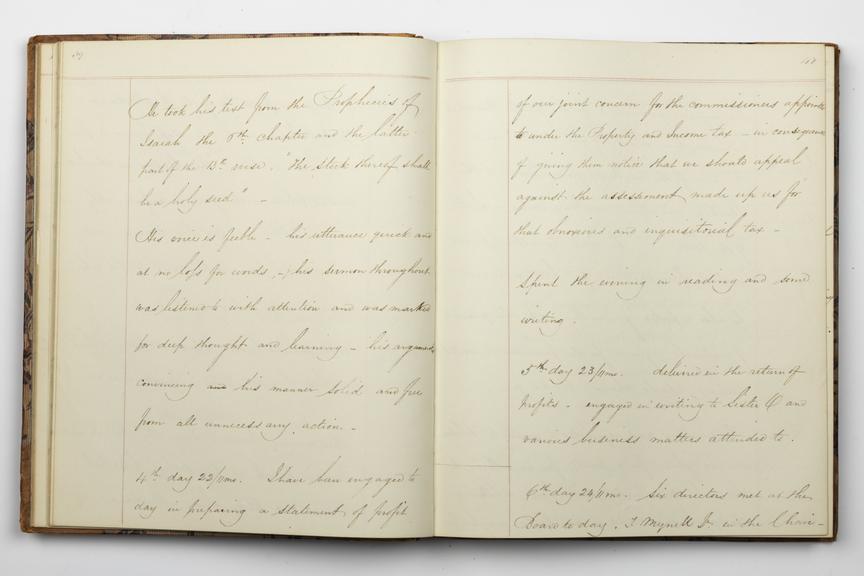 He took his text from the Prophecies of
Isaiah the 6th chapter and the latter
part of the 13th verse. "the stock thereof shall
be a holy seed" -
His voice is feeble - his utterance quick and
at no loss for words, - his sermon throughout
was listened to with attention and was marked
for deep thought and learning - his arguments
convincing and his manner solid and free
from all unnecessary action. -
4th day 22/11mo. I have been engaged to
day in preparing a statement of profit
of our joint concern for the commissioners appointed
to under the Property and Income tax - in consequence
of giving them notice that we should appeal
against the assessment made up us for
that obnoxious and inquisitorial tax -
Spent the evening in reading and some
writing.
5th day 23/11mo. delivered in the return of
Profits - engaged in writing to Sister and
various business matters attended to.
6th day 24/11mo. Six directors met at the
Board to day. T Mynell Jr. in the Chair -